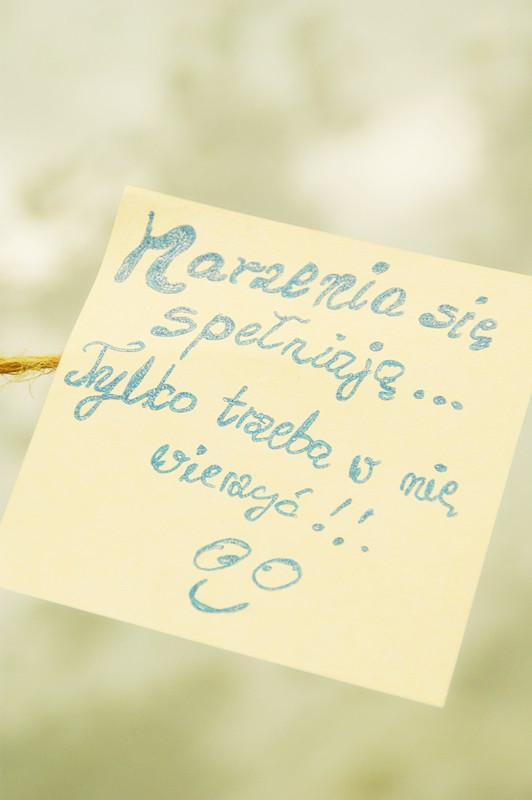 Marzenia się
spełniają...
Tylko trzeba w nie
wierzyć!!!